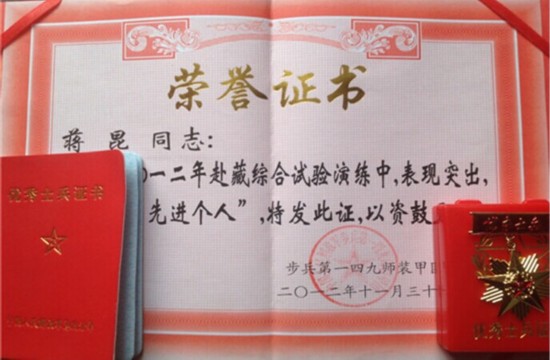 荣誉证书
蒋昆 同志：
○一二年赴藏综合试验演练中，表现突出，
先进个人”，特发此证，以资鼓
步兵第一四九师装甲
二○一二年十一月三十
优秀士兵证书
优秀士兵
优秀士兵证